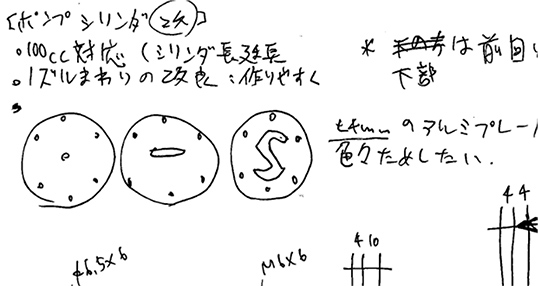 [ポンプシリンダ 改]
。100cc対応 (シリンダ長延長
。ノズルまわりの改良:作りやすく
* は前回
下部
t4mm のアルミプレー
色々ためしたい.
S
4 4
4 10
φ6.5×6
M6×6